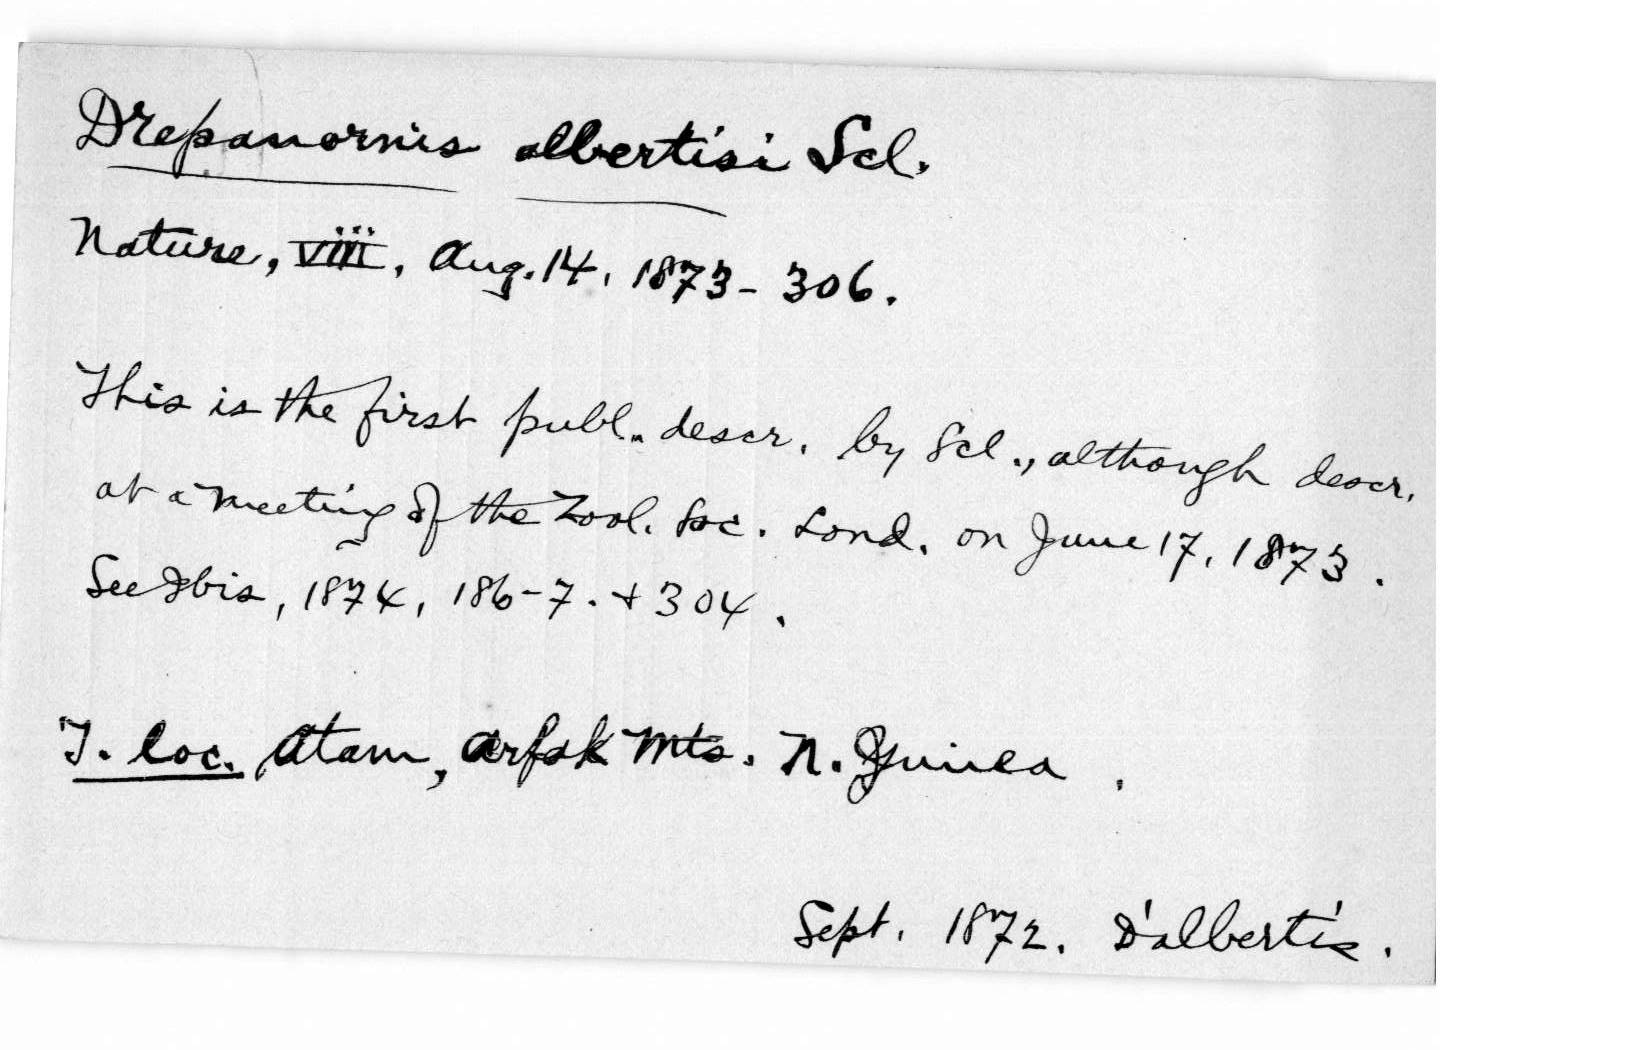 Drepanornis albertisi Scl.
Nature, viii, Aug. 14, 1873 - 306.
This is the first publ. descr. by Scl., although descr.
at a meeting of the Zool. Soc. Lond. on June 17, 1873.
See Ibis, 1874, 186-7. + 304.
T. loc. Atam, Arfak Mts. N. Guinea.
Sept. 1872. D'Albertis.